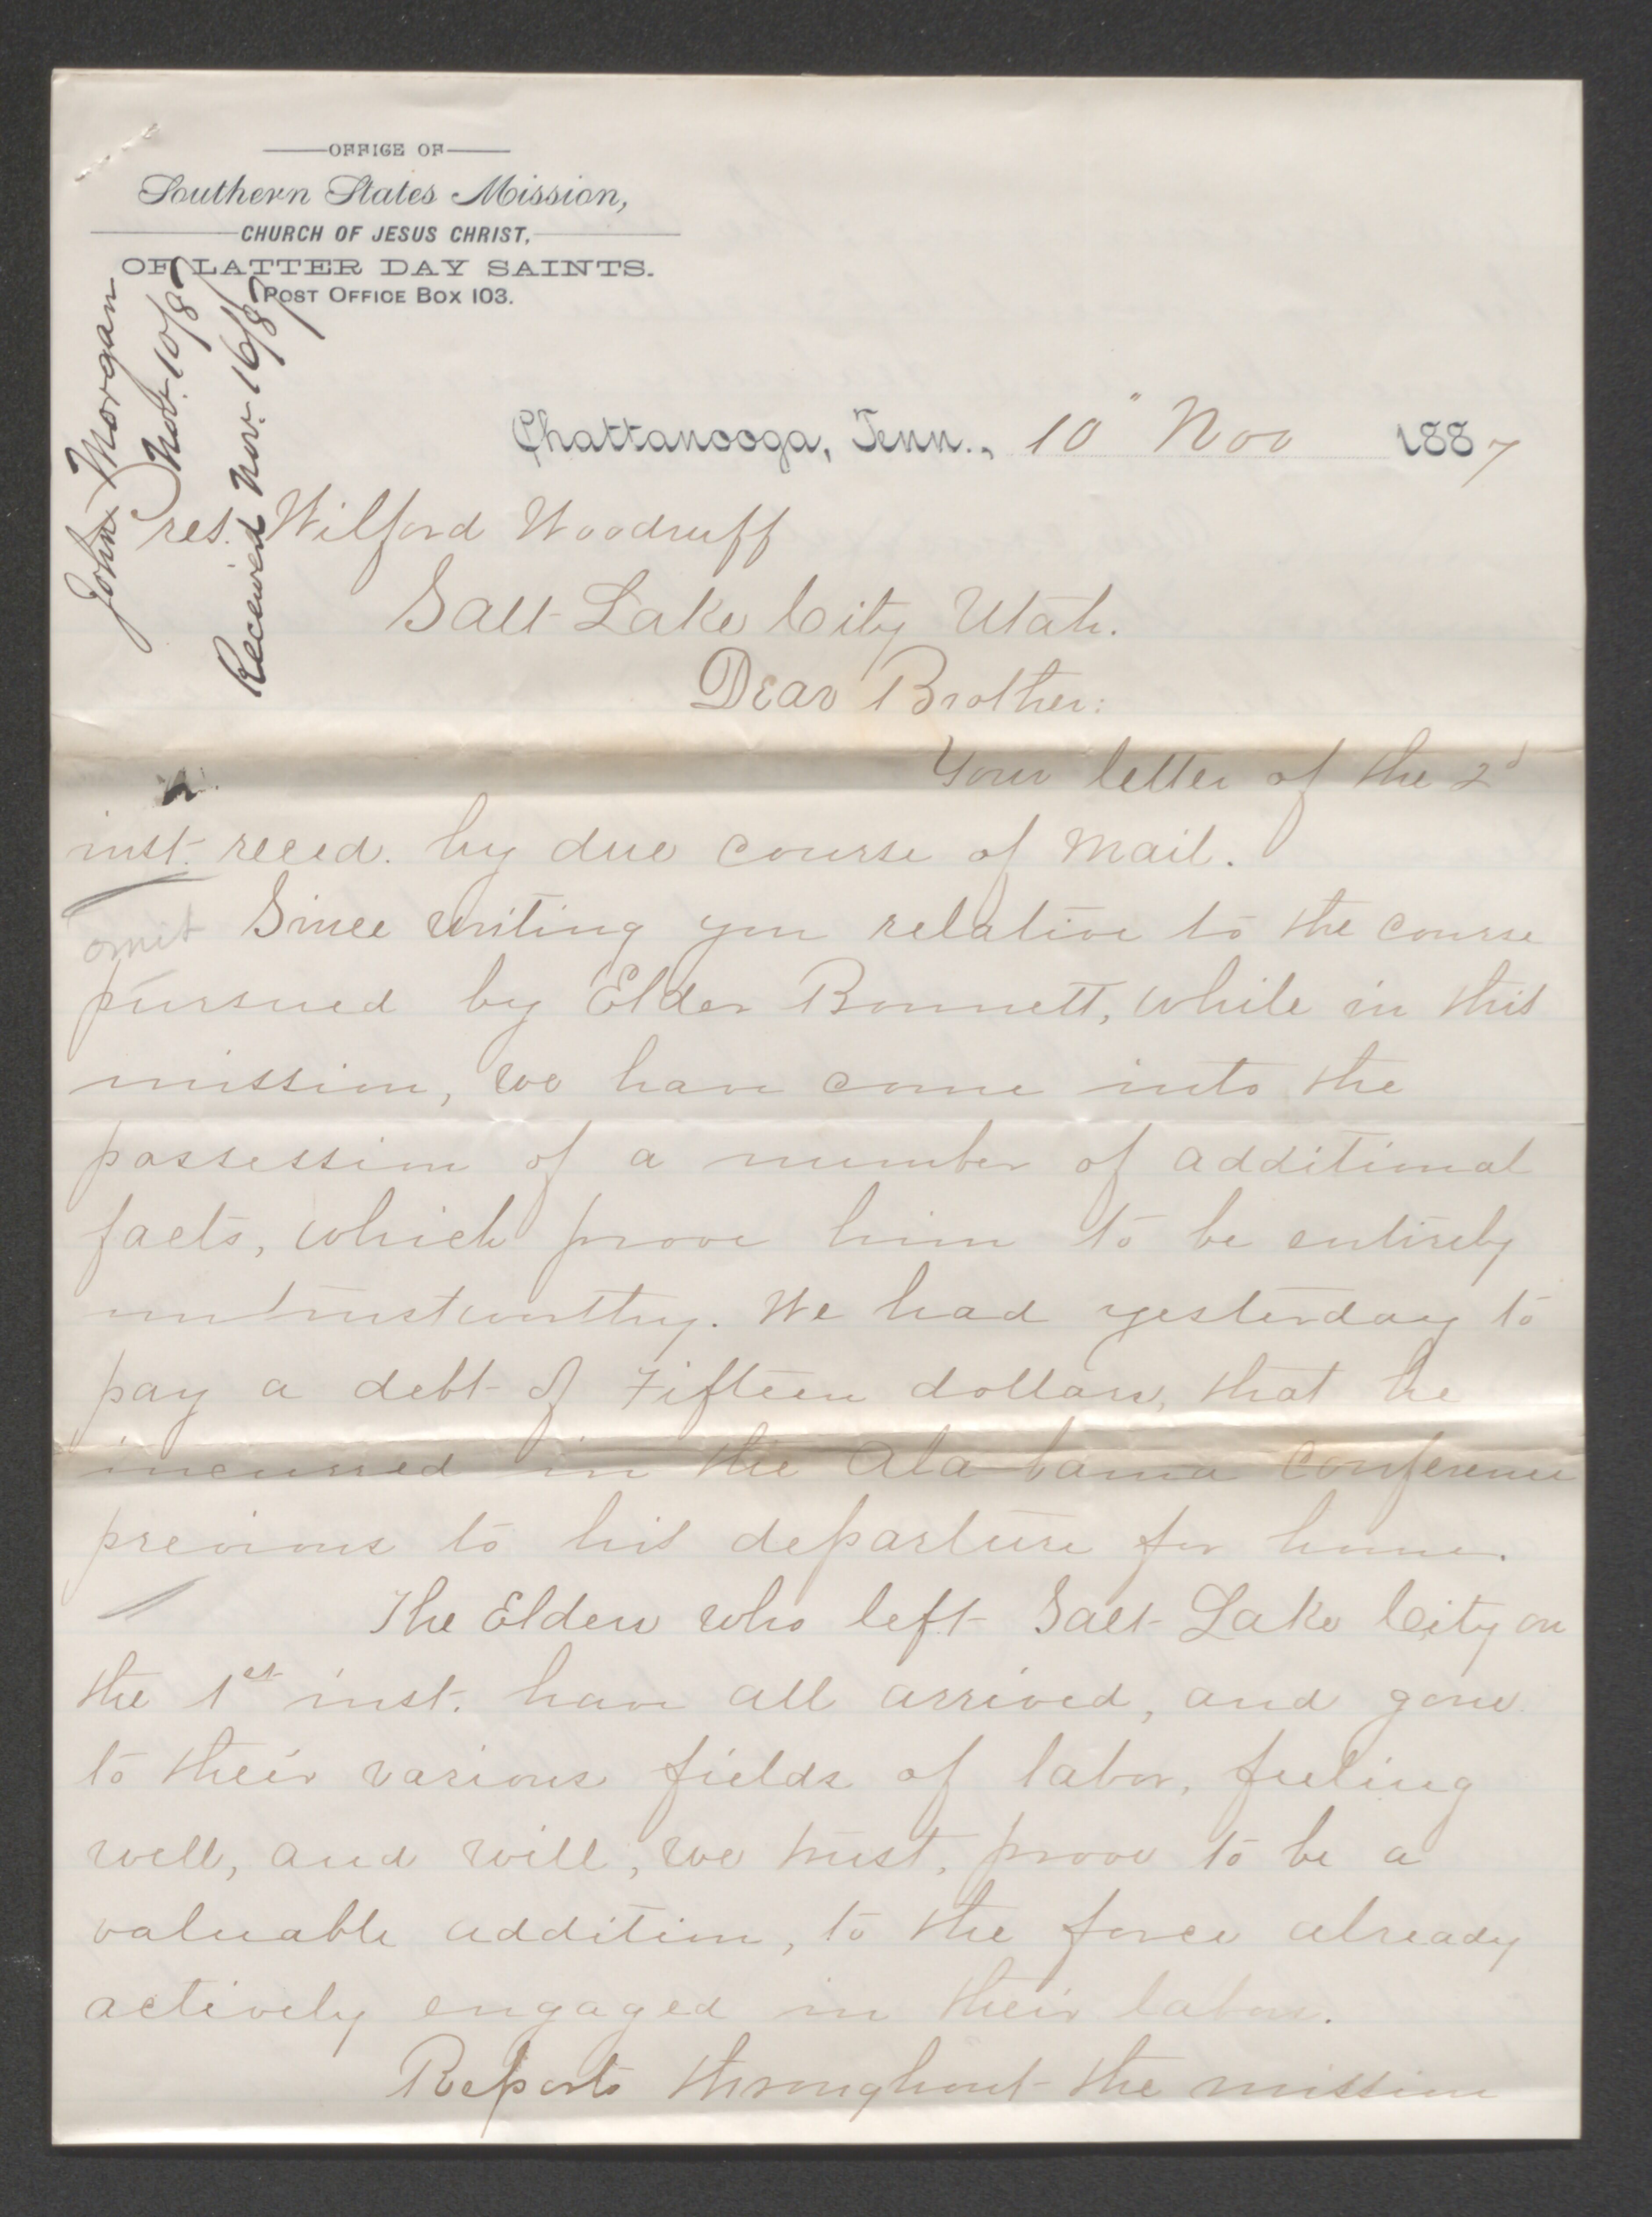 OFFICE OF
Southern States Mission,
CHURCH OF JESUS CHRIST,
OF LATTER DAY SAINTS.
POST OFFICE BOX 103.
John Morgan
Nov. 10/87
Received Nov. 16/87
Chattanooga, Tenn., 10" Nov 1887
Pres. Wilford Woodruff
Salt Lake City Utah.
Dear Brother:
Your letter of the 2d
inst. reced. by due course of mail.
omit
Since writing you relative to the course
pursued by Elder Bonnett, while in this
mission, we have come into the
possession of a number of additional
facts, which prove him to be entirely
untrustworthy. We had yesterday to
pay a debt of Fifteen dollars, that he
incurred in the Ala-bama Conference
previous to his departure for home.
The Elders who left Salt Lake City on
the 1st inst. have all arrived, and gone
to their various fields of labor, feeling
well, and will, we trust, prove to be a
valuable addition, to the force already
actively engaged in their labors.
Reports throughout the mission